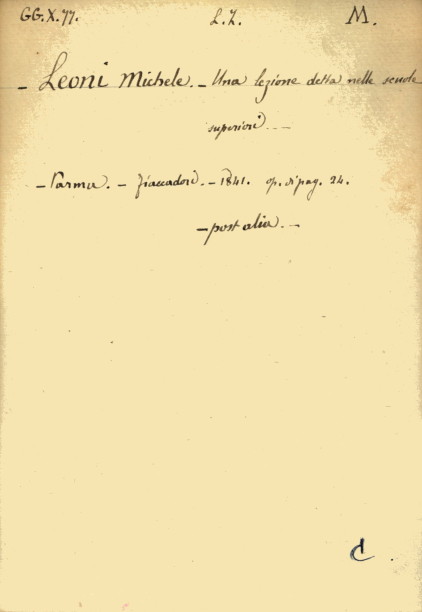 GG.X.77. L.Z. M.
- Leoni Michele. - Una lezione detta nelle scuole
superiori. -
- Parma. - Fiaccadori. - 1841. op. di pag. 24.
- post alia. -